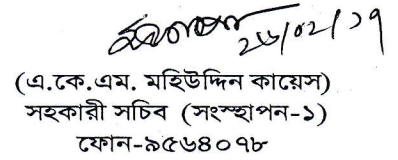 ২৬/০২/১৭
(এ.কে.এম. মহিউদ্দিন কায়েস)
সহকারী সচিব (সংস্হাপন-১)
ফোন-৯৫৬৪০৭৮